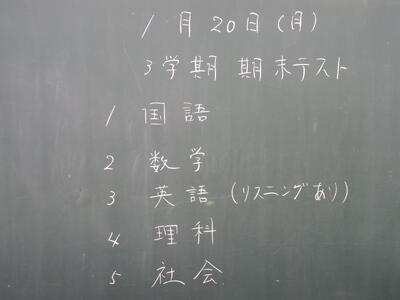 1月20日(月)
3学期 期末テスト
1 国語
2 数学
3 英語 (リスニングあり)
4 理科
5 社会